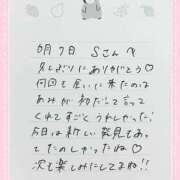 6月7日 Sさんへ
久しぶりにありがとう♡
何回も会いに来たのは
あみが初だって言って
くれてすごくうれしかった!
今日は新しい発見もあっ
てたのしかったね♡
次も楽しみにしてるね!!